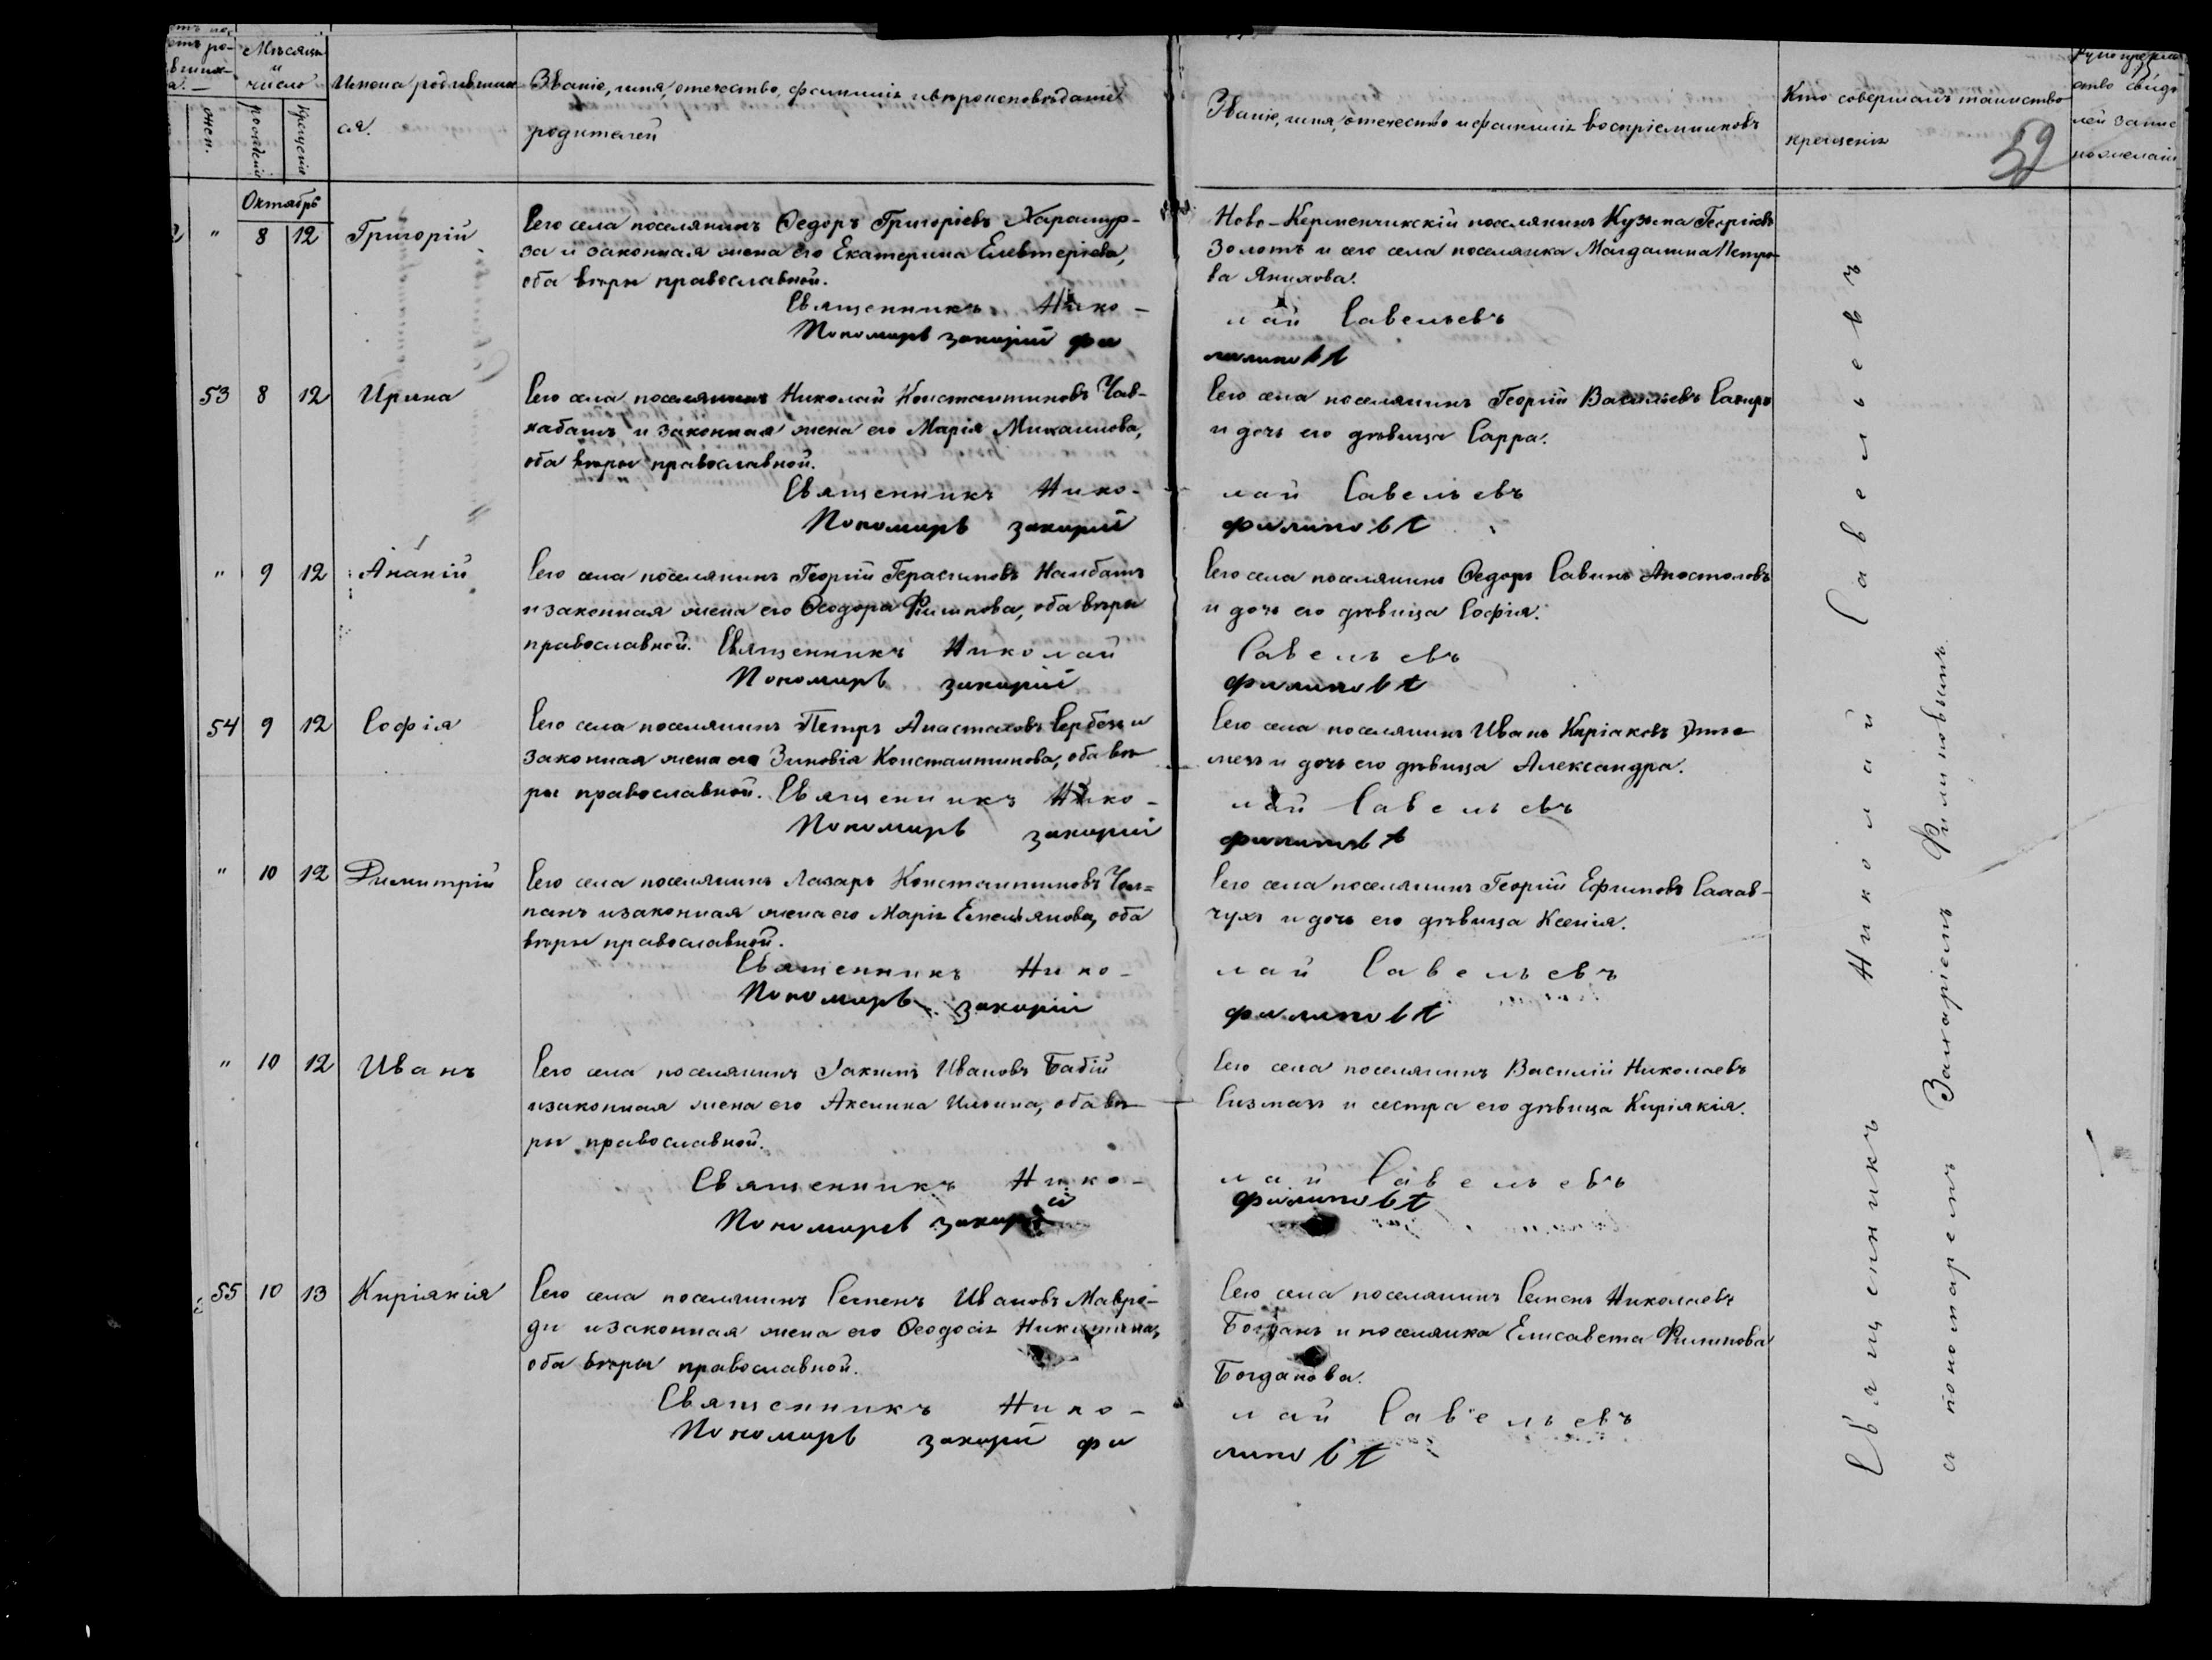 Мѣсяцъ
и
число
рожденія
крещенія
жен.
Имена родившихся
ся.
Званіе, имя, отечество, фамилія и вѣроисповѣданіе
родителей
Званіе, имя, отечество и фамилія воспріемниковъ
Кто совершалъ таинство
крещенія
52
Октябрь
" 8 12 Григорій
Сего села поселянинъ Ѳедоръ Григоріевъ Харамур-
за и законная жена его Екатерина Елевтеріева,
оба вѣры православной.
Священникъ Нико-
Пономарь захарій фи
Ново-Керменчикскій поселянинъ Кузьма Георгіевъ
Золотъ и сего села поселянка Магдалина Петро-
ва Янихова.
лай Савельевъ
липовъ
53 8 12 Ирина
Сего села поселянинъ Николай Константиновъ Чав-
кабашъ и законная жена его Марія Михаилова,
оба вѣры православной.
Священникъ Нико-
Пономарь захарий
Сего села поселянинъ Георгій Васильевъ
и дочь его дѣвица Сарра.
лай Савельевъ
филиповъ
" 9 12 Ананій
Сего села поселянинъ Георгій Герасимовъ Налбатъ
и законная жена его Ѳеодора Филипова, оба вѣры
православной. Священникъ Николай
Пономарь захарій
Сего села поселянинъ Ѳедоръ Савинъ Апостоловъ
и дочь его дѣвица Софія.
Савельевъ
филиповъ
54 9 12 Софія
Сего села поселянинъ Петръ Анастасовъ и
законная жена его Зиновія Константинова, оба вѣ
ры православной. Священникъ Нико-
Пономарь захарий
Сего села поселянинъ Иванъ Киріаковъ
и дочь его дѣвица Александра.
лай Савельевъ
филиповъ
" 10 12 Димитрій
Сего села поселянинъ Лазарь Константиновъ Чол=
панъ и законная жена его Марія Емельянова, оба
вѣры православной.
Священникъ Нико-
Пономарь захарій
Сего села поселянинъ Георгій Ефимовъ Салав-
чухъ и дочь его дѣвица Ксенія.
лай Савельевъ
филиповъ
" 10 12 Иванъ
Сего села поселянинъ Іакимъ Ивановъ Бабій
и законная жена его Аксинія Ильина, оба вѣ
ры православной.
Священникъ Нико-
Пономарь захарій
Сего села поселянинъ Василій Николаевъ
и сестра его дѣвица Киріякія.
лай Савельевъ
филиповъ
55 10 13 Киріякія
Сего села поселянинъ Семенъ Ивановъ Мавро-
ди и законная жена его Ѳеодосія Никитина,
оба вѣры православной.
Священникъ Нико-
Пономарь захарій фи
Сего села поселянинъ Семенъ Николаевъ
Богданъ и поселянка Елисавета Филипова
Богданова.
лай Савельевъ
липовъ
Священникъ Николай Савельевъ
и пономаремъ Захаріемъ Филиповымъ